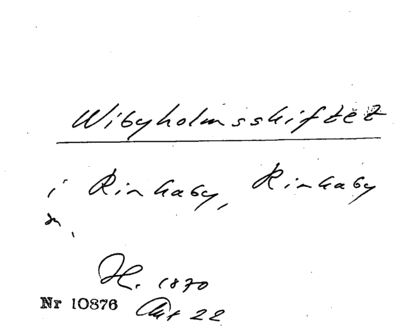 Wibyholmsskiftet
i Rinkaby, Rinkaby
n.
H. 1870
Nr 10876 Akt 22